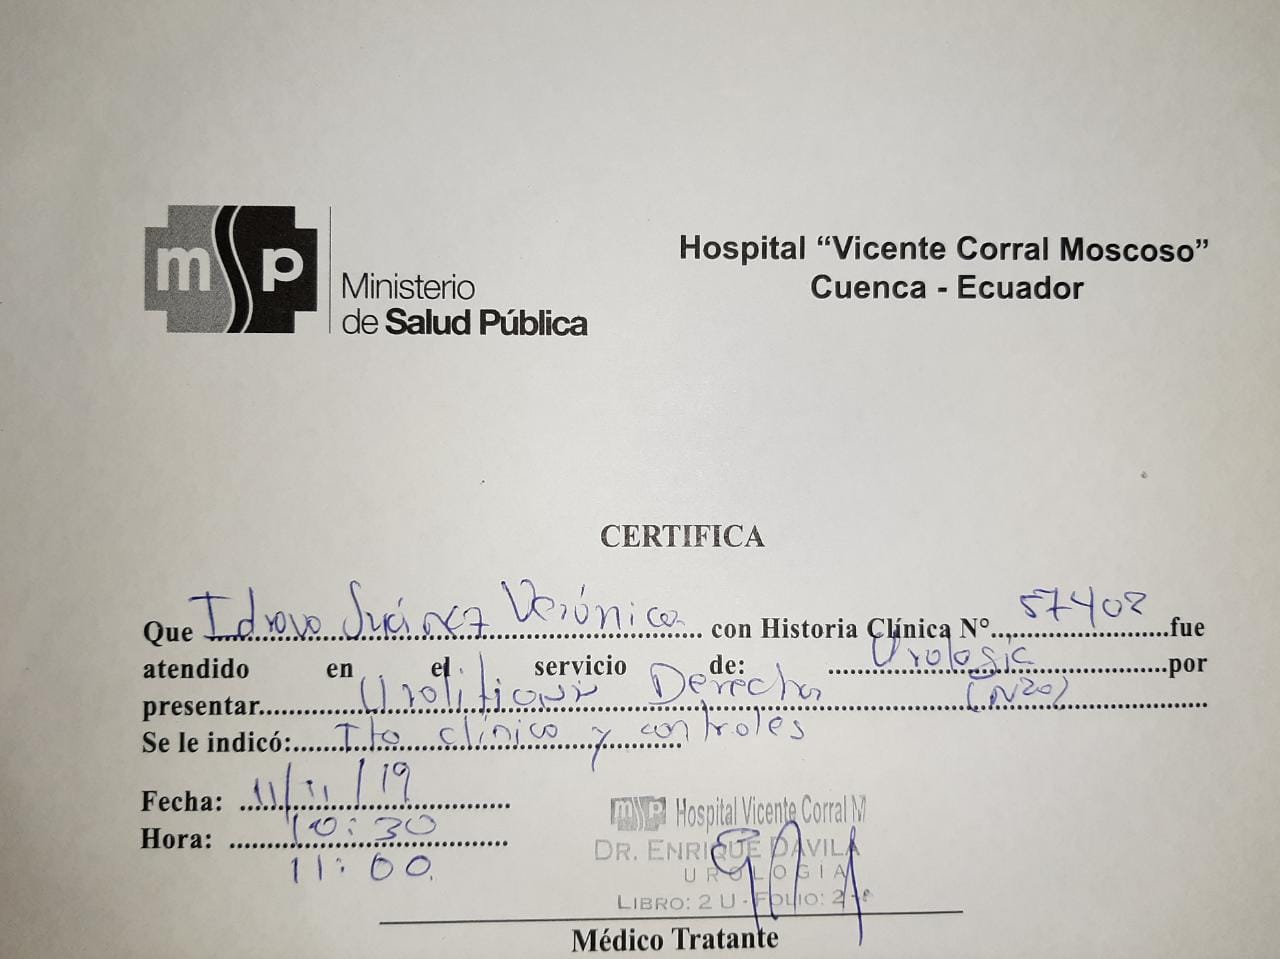 msp
Ministerio
de Salud Pública
Hospital “Vicente Corral Moscoso”
Cuenca - Ecuador
CERTIFICA
Que Idrovo Suárez Verónica con Historia Clínica N°. 57408 fue
atendido en el servicio de: Urología por
presentar Urolitiasis Derecha (N20)
Se le indicó: Tto clínico y controles
Fecha: 11/11/19
Hora: 10:30
11:00
msp Hospital Vicente Corral M
DR. ENRIQUE DAVILA
UROLOGIA
LIBRO: 2 U - FOLIO: 2
Médico Tratante